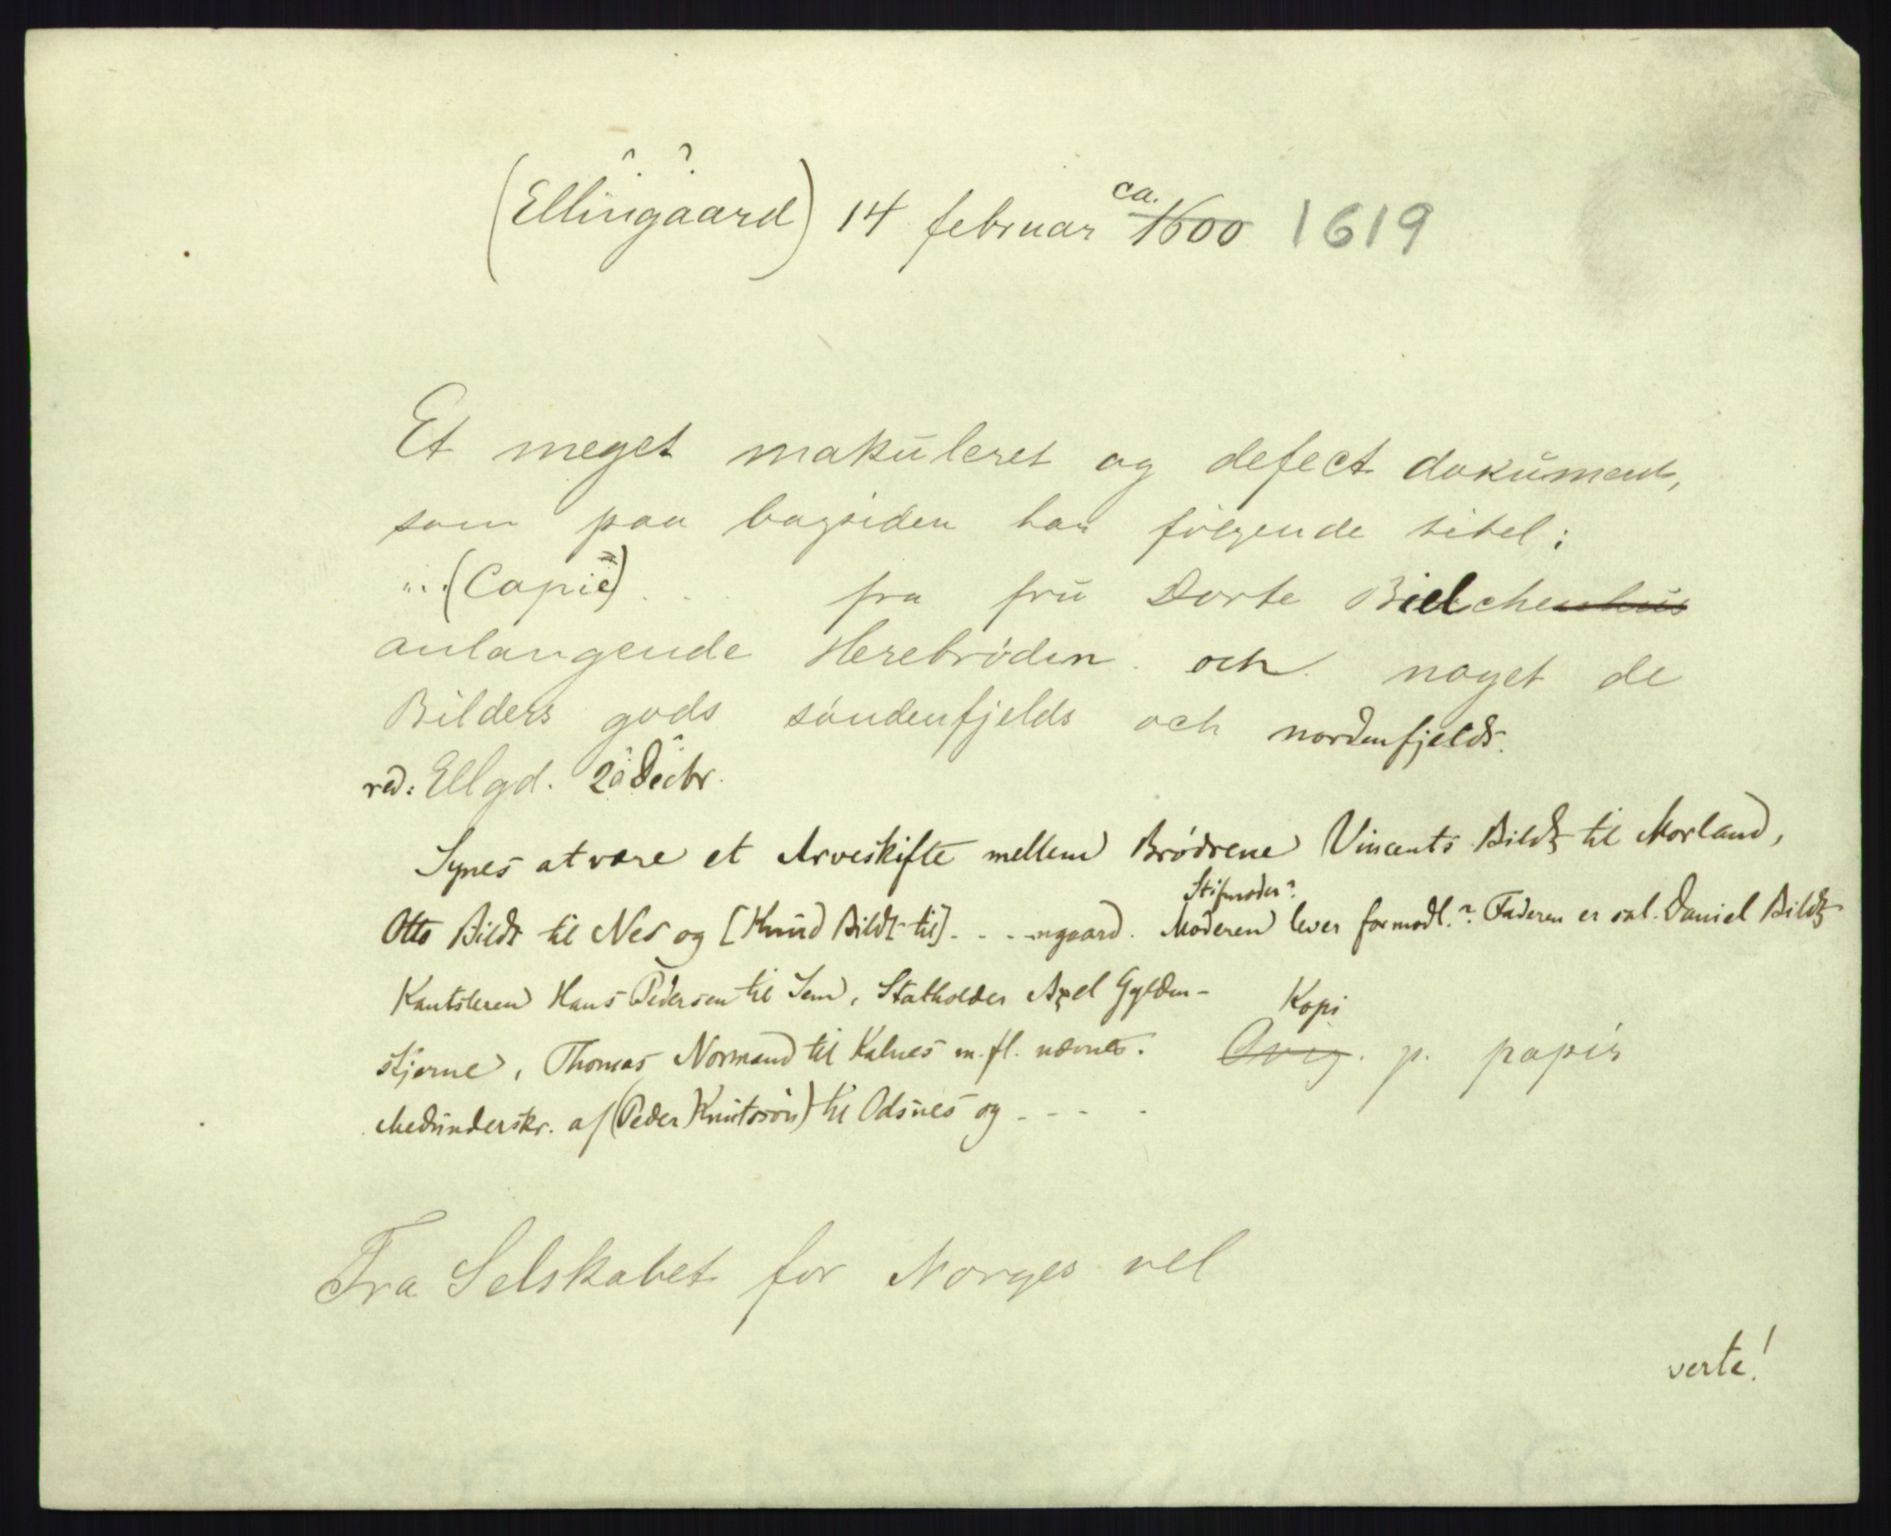 (Ellingaard) ? 14 februar ca. 1600 1619
Et meget makuleret og defect dokument,
som paa bagsiden har følgende titel:
"..(Copie) . . . fra fru Dorte Bielchenhus
anlangende Herebrøden och noget de
Bilders gods søndenfjelds och nordenfjelds.
red: Ellgd. 20 Decbr.
Synes at være et Arveskifte mellem Brødrene Vincents Bildt til Morland,
Stifmoder?
Otto Bildt til Nes og [Knud Bildt til] . . . . ngaard. Moderen lever formodl.? Faderen er sal. Daniel Bildt
Kantsleren Hans Pedersen til Sem, Statholder Axel Gylden- Kopi
stjerne, Thomas Normand til Kalnes m. fl. nævnes. Orig. p. papir
Medunderskr. af (Peder Knutssøn) til Odsnes og - - - -
Fra Selskabet for Norges vel
verte!